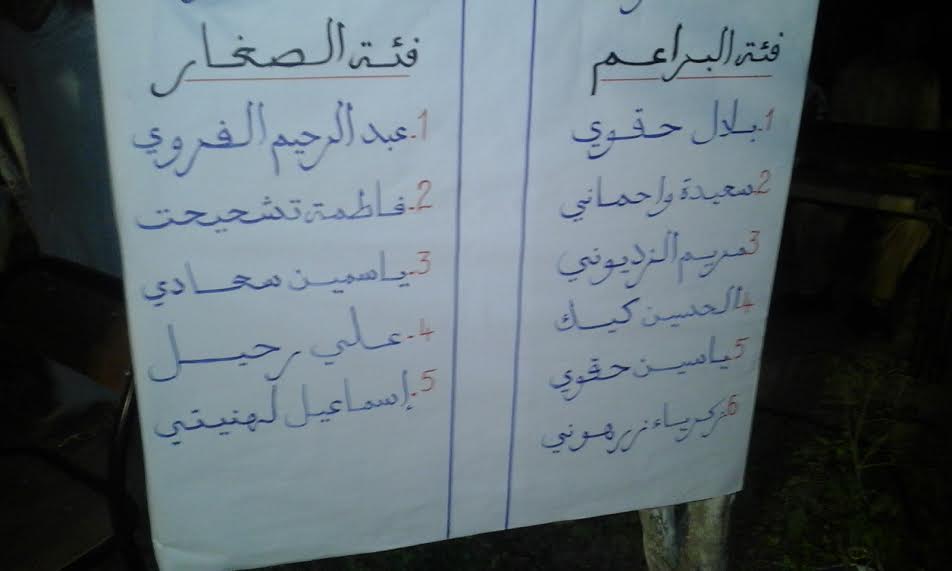 فئة البراعم
1. بلال حقوي
2. سعيدة واحماني
3. مريم الزديوني
4. الحسين كيك
5. ياسين حقوي
6. زكرياء زرهوني
فئة الصغار
1. عبد الرحيم الفروي
2. فاطمة تشحيحت
3. ياسمين سحادي
4. علي رحيل
5. إسماعيل لهنيتي